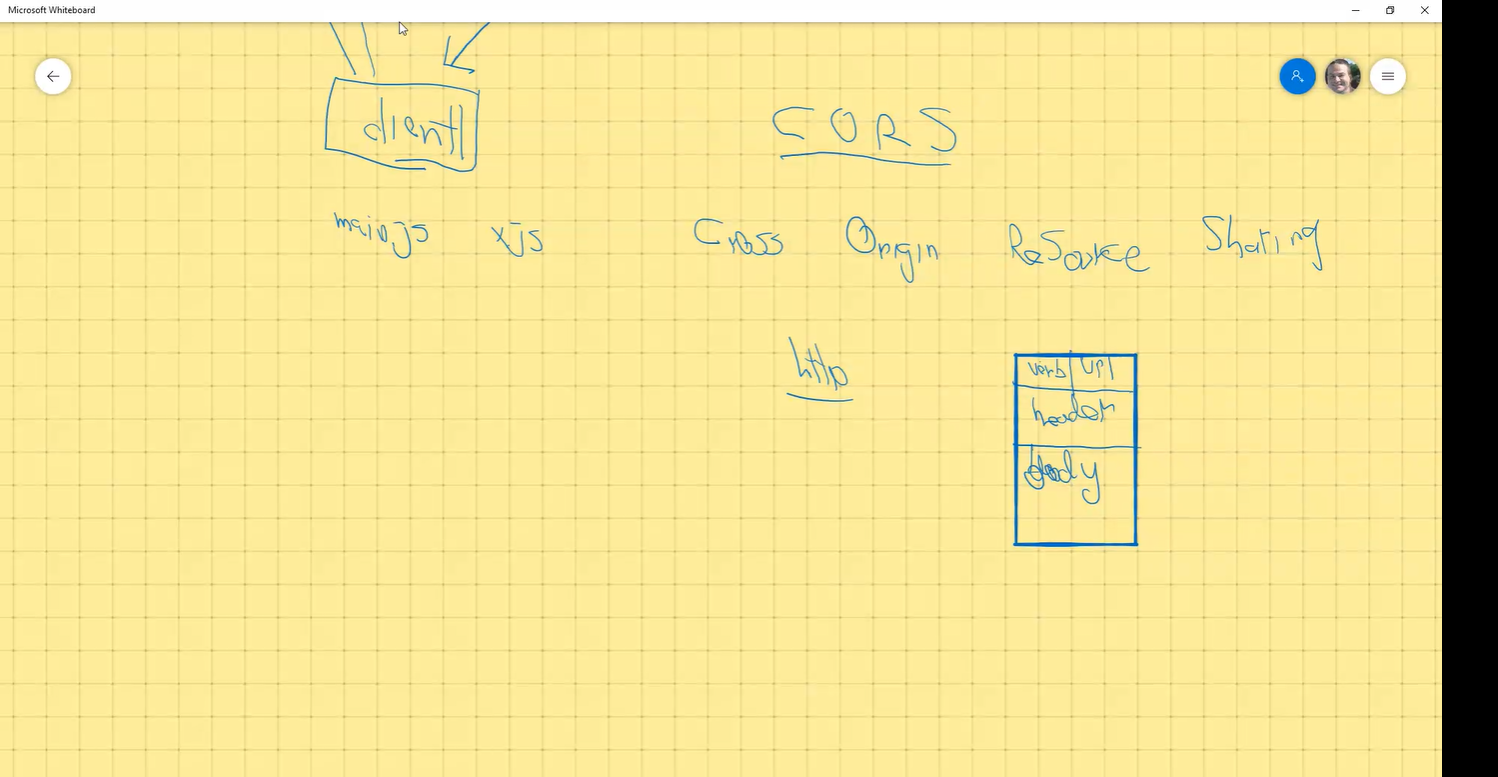 Microsoft Whiteboard
client
CORS
main.js xjs Cross Origin Resource Sharing
http
verb url
header
body